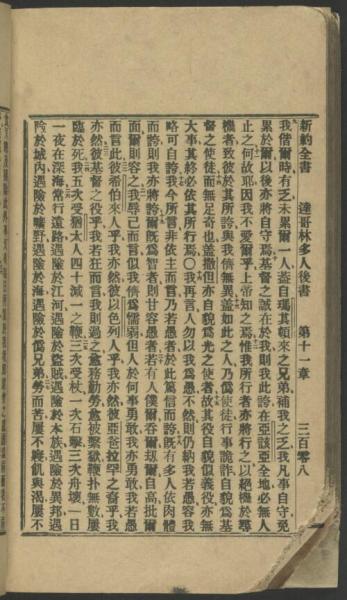 新約全書 達哥林多人後書 第十一章 三百零八
我偕爾時有乏未累爾一人蓋自瑪其頓來之兄弟補我之乏我凡事自守免
累於爾以後亦將自守焉基督之誠在於我則我此誇在亞該亞全地必無人
止之何故耶因我不愛爾乎上帝知之焉惟我所行者亦將行之以絕機於尋
機者致彼於其所誇與我儕無異蓋如此之人乃僞使徒行事詭詐自貌爲基
督之使徒而無足奇也蓋撒但亦自貌爲光之使者故其役自貌似義役亦無
大事其終必依其所行焉〇我再言人勿以我爲愚不然則仍納我若愚容我
略可自誇我今所言非依主而言乃若愚者於此篤信而誇既有多人依肉體
而誇則我亦將誇爾既爲智者則甘容愚者若有人僕爾吞爾擄爾自高批爾
面爾則容之我辱己而言似我儕爲懦弱但人於何事勇敢我亦勇敢我若愚
而言此彼希伯來人乎我亦然彼以色列人乎我亦然彼亞伯拉罕之裔乎我
亦然彼基督之役乎我若狂而言我則過之愈務勤勞愈被繫獄鞭扑無數屢
臨於死我五次受猶太人四十減一之鞭三次受杖一次石擊三次舟壞一日
一夜在深海常行遠路遇險於江河遇險於盜賊遇險於本族遇險於異邦遇
險於城內遇險於曠野遇險於海遇險於僞兄弟勞而苦屢不寢飢與渴屢不